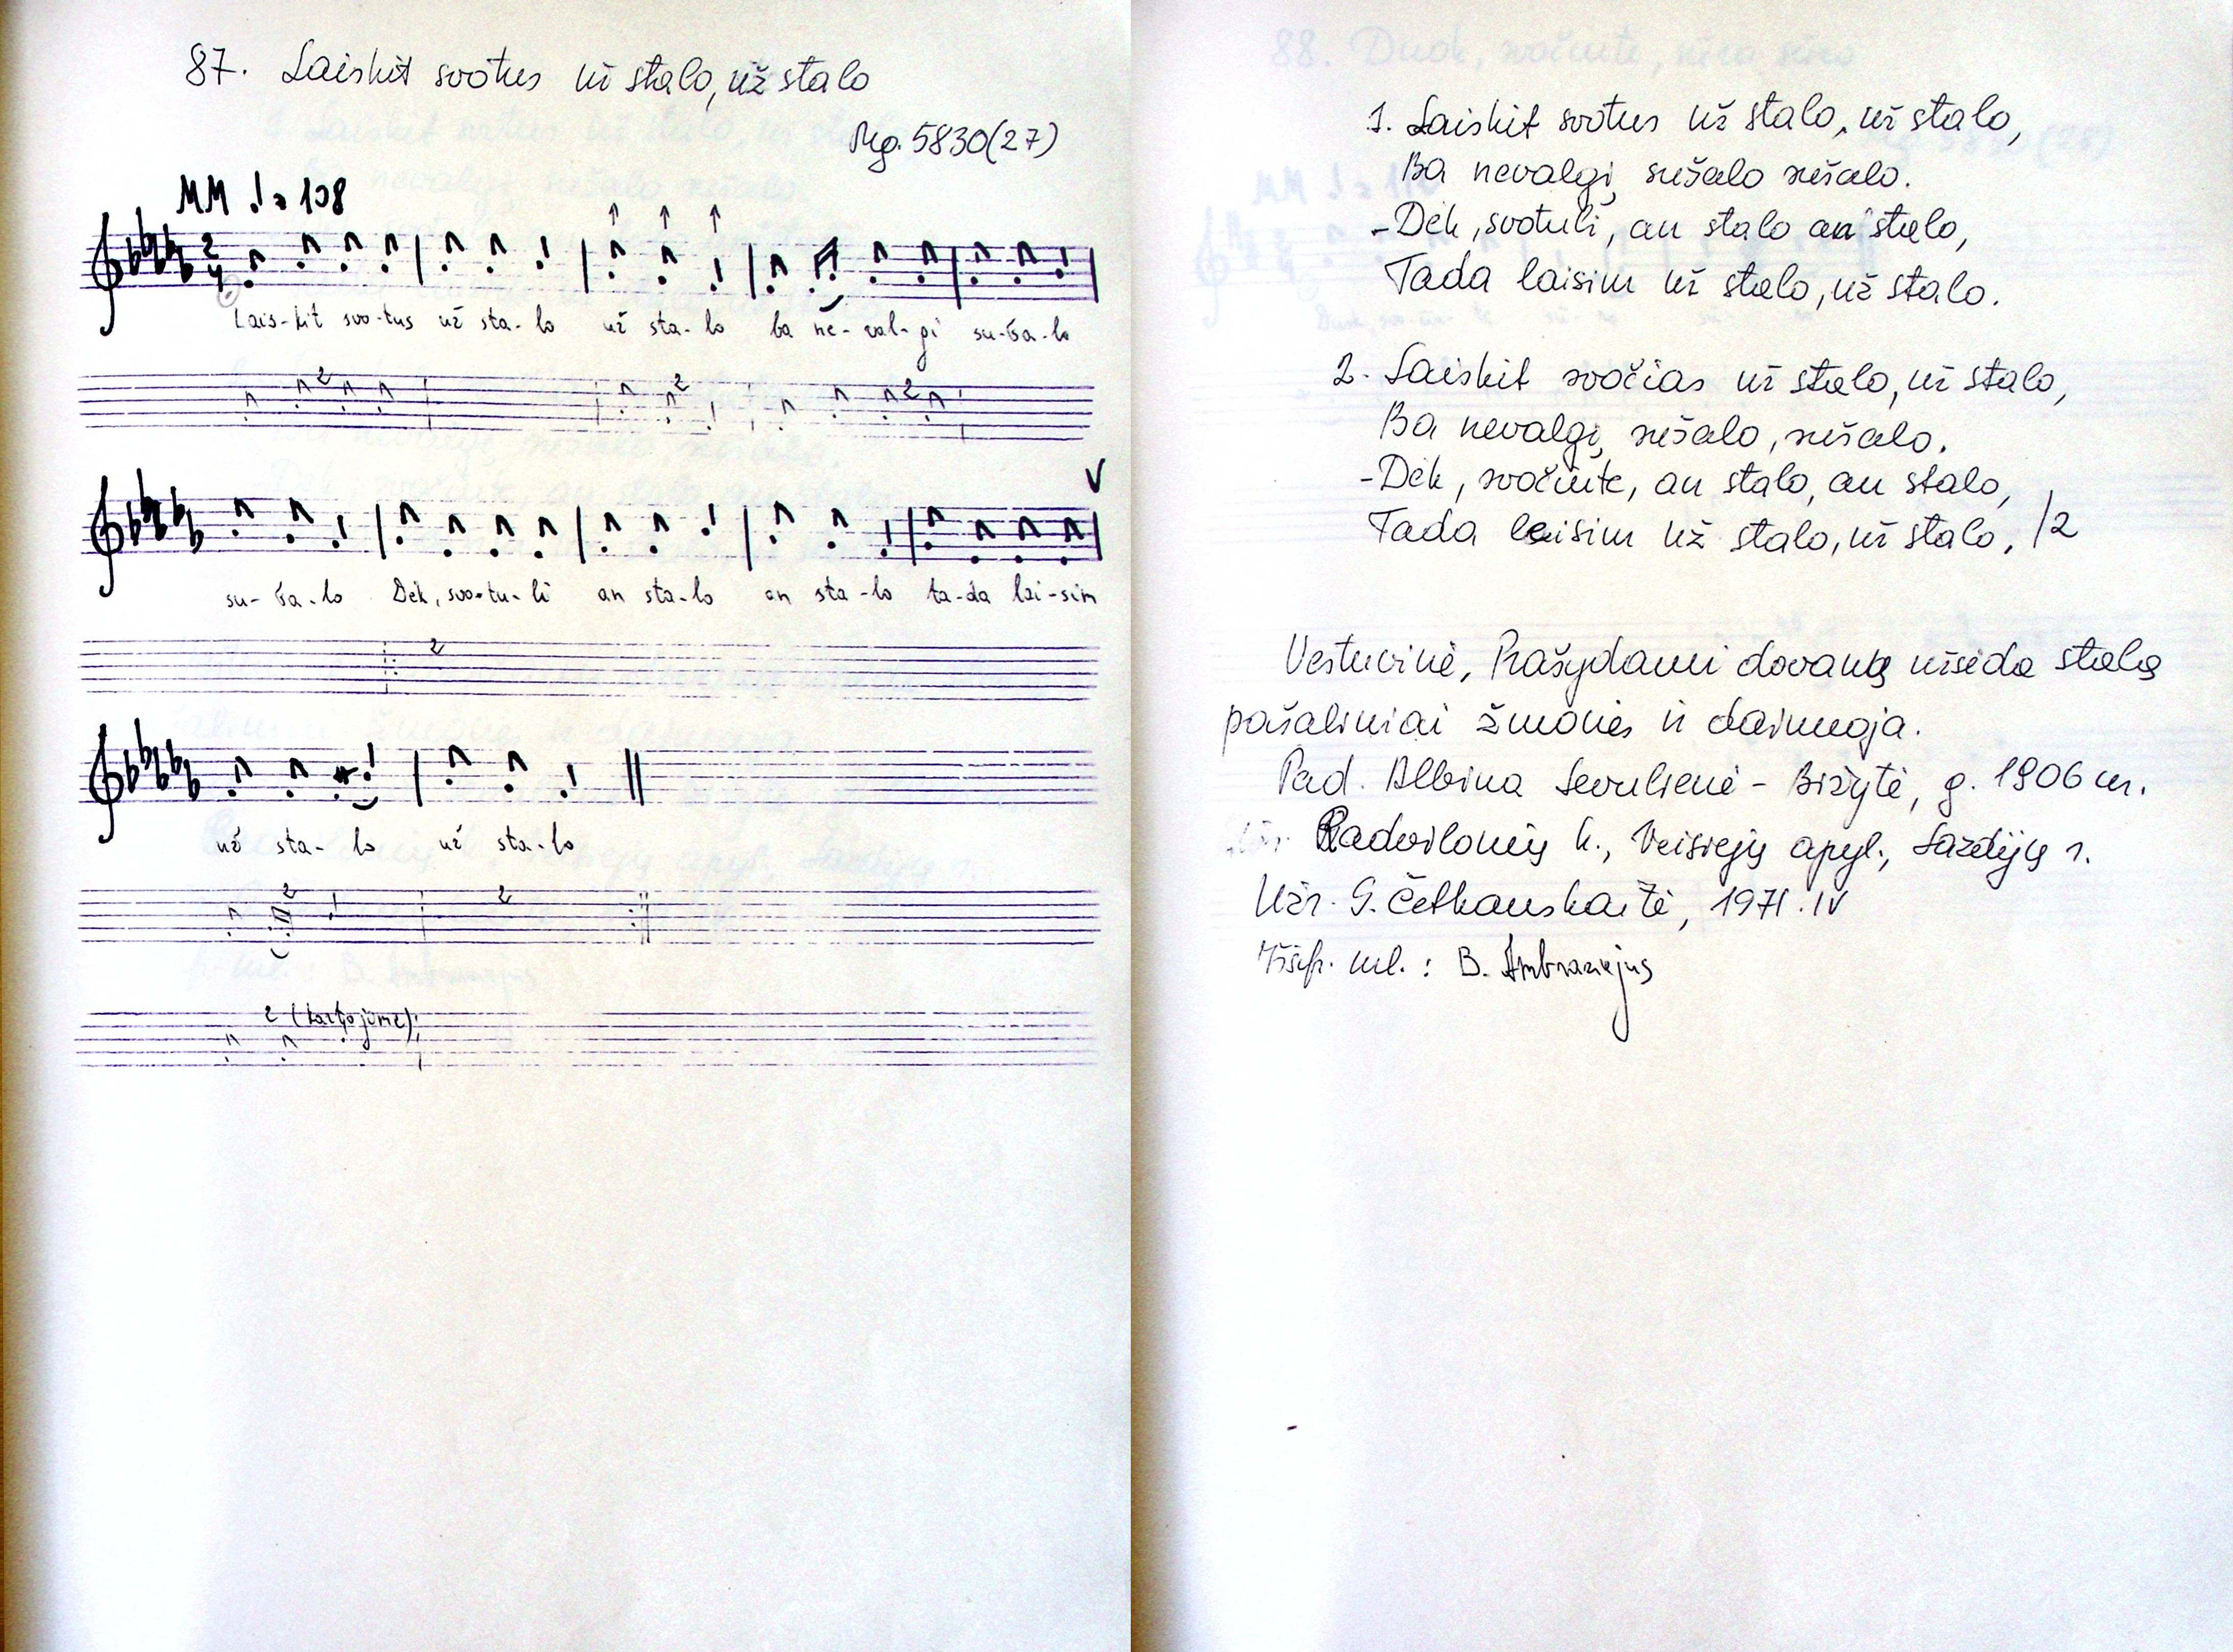 87. Laiskit svotus už stalo, už stalo
Mg. 5830(27)
MM ♩ = 108
2/4
Lais-kit svo-tus už sta-lo už sta-lo ba ne-val-gį su-ša-lo
2 2 2
su-ša-lo Dėk, svo-tu-li an sta-lo an sta-lo ta-da lai-sim
2
už sta-lo už sta-lo
2 2
2 (kartojime)
1. Laiskit svotus už stalo, už stalo,
Ba nevalgį sušalo sušalo.
- Dėk, svotuli, an stalo an stalo,
Tada laisim už stalo, už stalo.
2. Laiskit svočias už stalo, už stalo,
Ba nevalgį sušalo, sušalo.
- Dėk, svočiute, an stalo, an stalo,
Tada laisim už stalo, už stalo. /2
Vestuvinė, Prašydami dovanų užsėda stalą
pašaliniai žmonės ir dainuoja.
Pad. Albina Sevulienė - Bižytė, g. 1906 m.
Radvilonių k., Veisiejų apyl., Lazdijų r.
Užr. G. Četkauskaitė, 1971.IV
Iššifr. mel. : B. Ambraziejus